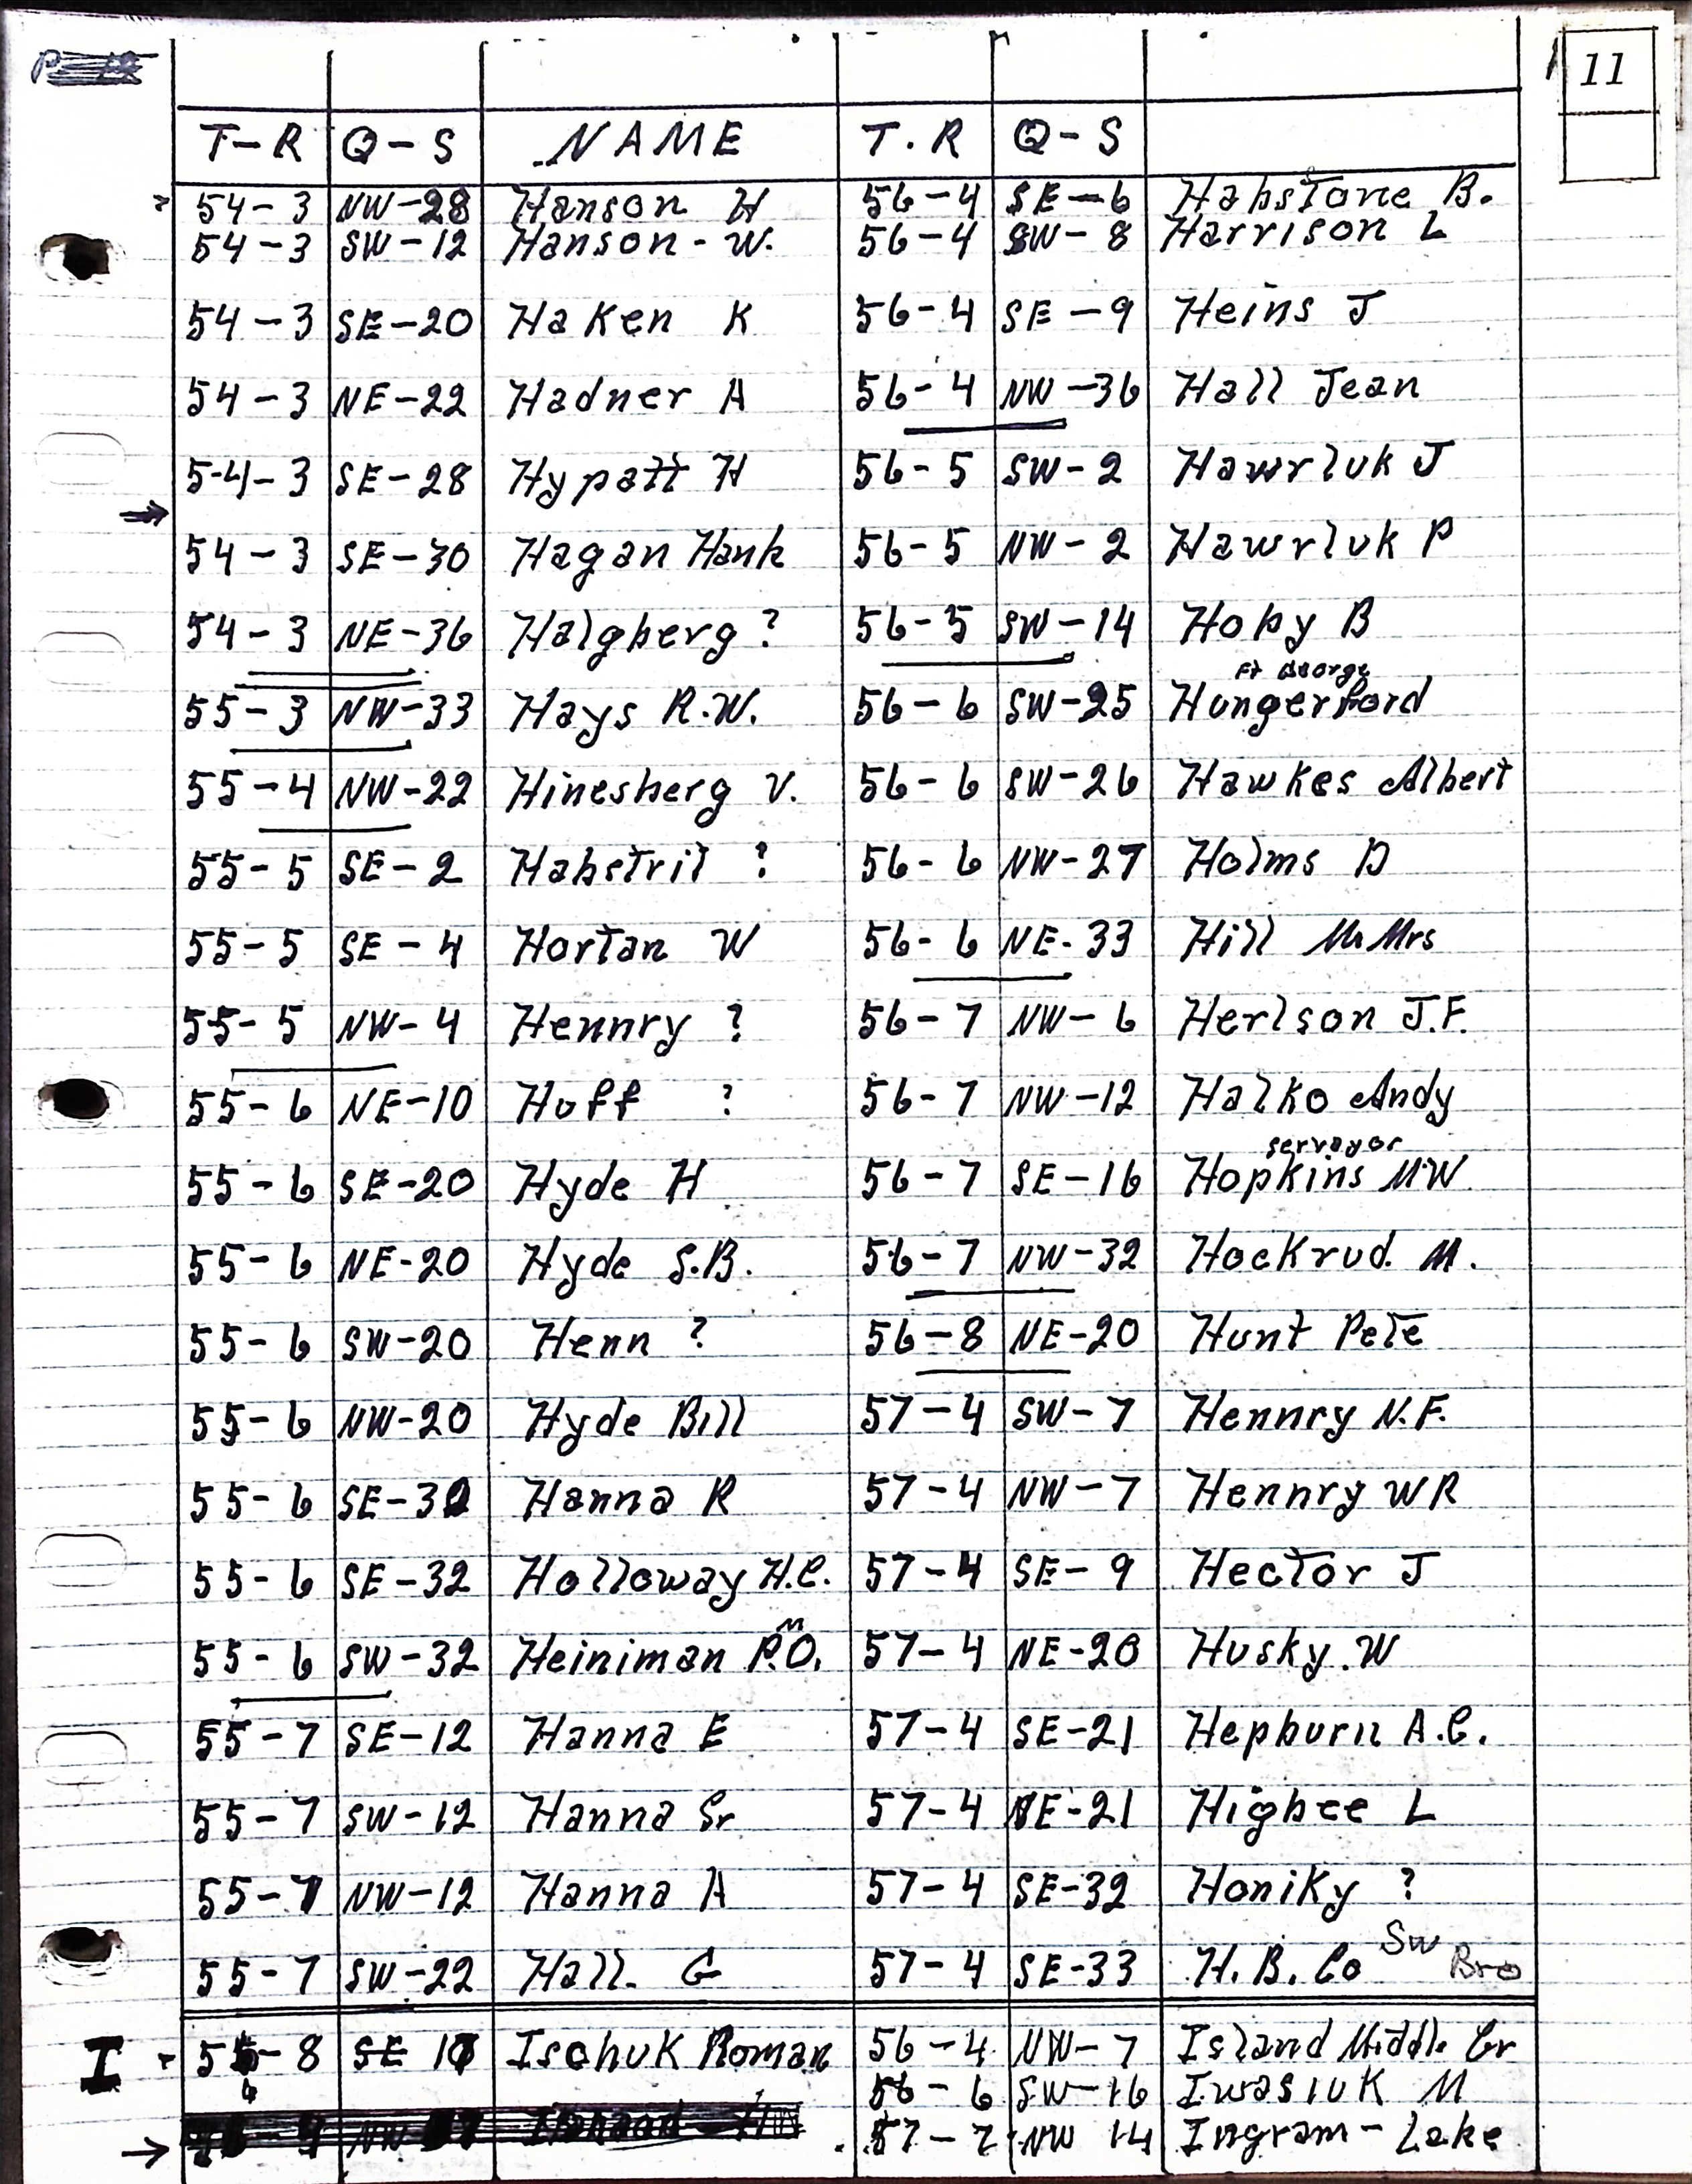 11
T-R Q-S NAME T.R Q-S
54-3 NW-28 Hanson H 56-4 SE-6 Habstone B.
54-3 SW-12 Hanson-W. 56-4 SW-8 Harrison L
54-3 SE-20 HaKen K 56-4 SE-9 Heins J
54-3 NE-22 Hadner A 56-4 NW-36 Hall Jean
54-3 SE-28 Hypatt H 56-5 SW-2 Hawrluk J
54-3 SE-30 Hagan Hank 56-5 NW-2 Hawrluk P
54-3 NE-36 Halgberg ? 56-5 SW-14 Hoby B
George
55-3 NW-33 Hays R.W. 56-6 SW-25 Hungerford
55-4 NW-22 Hinesberg V. 56-6 SW-26 Hawkes Albert
55-5 SE-2 Habstrit ? 56-6 NW-27 Holms D
55-5 SE-4 Hortan W 56-6 NE-33 Hill Mr Mrs
55-5 NW-4 Hennry ? 56-7 NW-6 Herlson J.F.
55-6 NE-10 Hoff ? 56-7 NW-12 Halko Andy
servayor
55-6 SE-20 Hyde H 56-7 SE-16 Hopkins M.W.
55-6 NE-20 Hyde S.B. 56-7 NW-32 Hockrud. M.
55-6 SW-20 Henn ? 56-8 NE-20 Hunt Pete
55-6 NW-20 Hyde Bill 57-4 SW-7 Hennry N.F.
55-6 SE-30 Hanna R 57-4 NW-7 Hennry WR
55-6 SE-32 Holloway H.C. 57-4 SE-9 Hector J
55-6 SW-32 Heiniman P.O. 57-4 NE-20 Husky.W
55-7 SE-12 Hanna E 57-4 SE-21 Hepburn A.C.
55-7 SW-12 Hanna Sr 57-4 NE-21 Higbee L
55-7 NW-12 Hanna A 57-4 SE-32 Honiky ?
55-7 SW-22 Hall. G 57-4 SE-33 H.B. Co SW Bro
I 56-8 SE Ischuk Roman 56-4 NW-7 Island Middle Cr
56-6 SW-16 Iwasiuk M
57-7 NW 14 Ingram-Lake